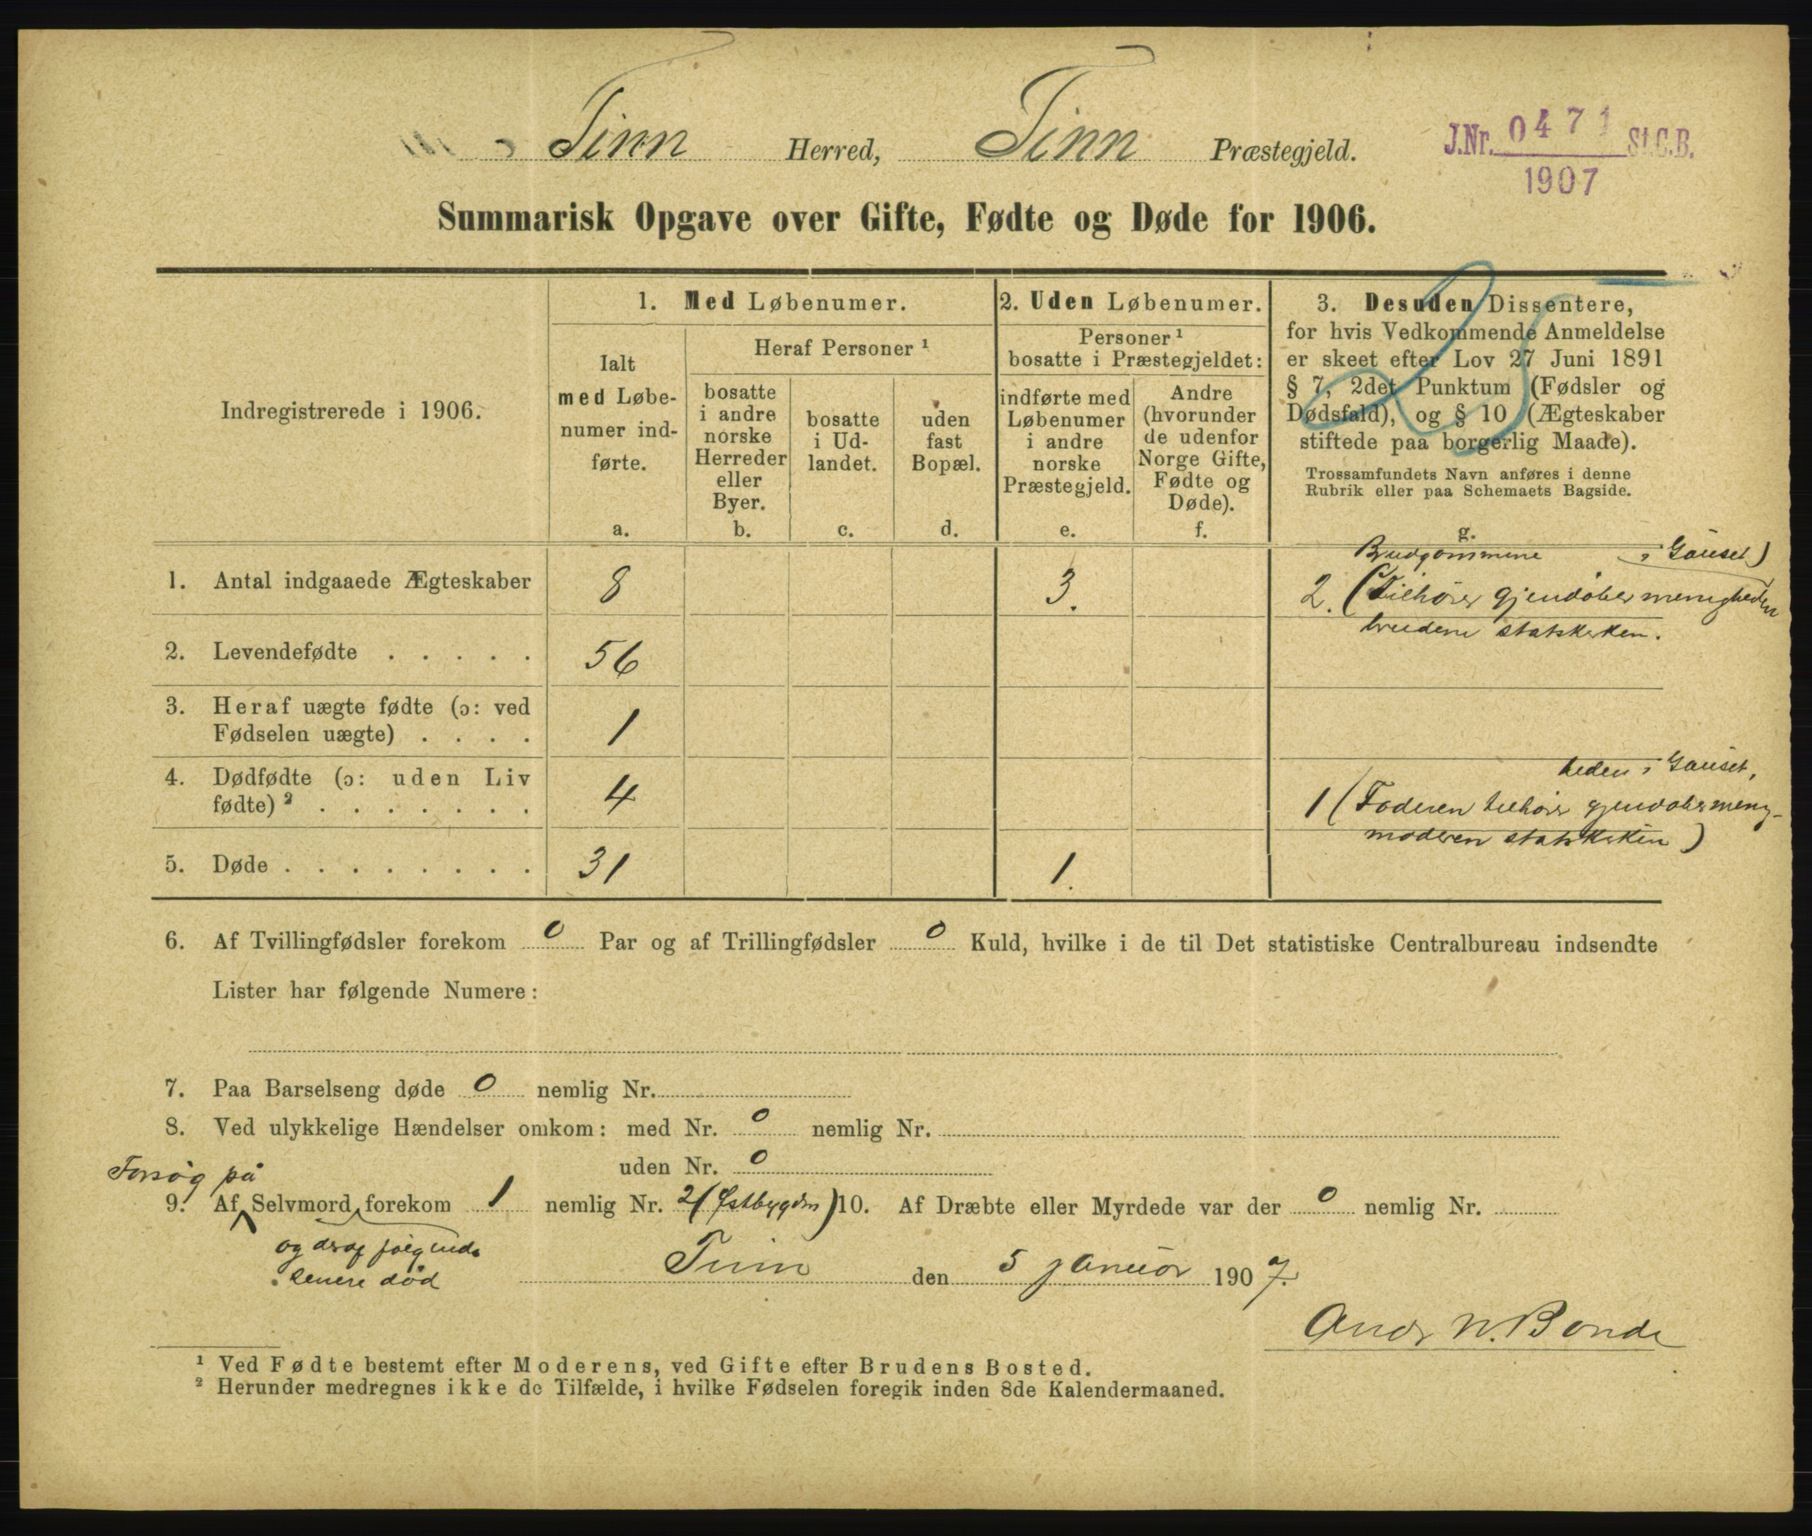 Tinn Herred, Tinn Præstegjeld.
J.Nr. 0471 St.C.B.
1907
Summarisk Opgave over Gifte, Fødte og Døde for 1906.
Indregistrerede i 1906.
1. Med Løbenumer.
Ialt
med Løbe-
numer ind-
førte.
a.
Heraf Personer ¹
bosatte
i andre
norske
Herreder
eller
Byer.
b.
bosatte
i Ud-
landet.
c.
uden
fast
Bopæl.
d.
2. Uden Løbenumer.
Personer ¹
bosatte i Præstegjeldet:
indførte med
Løbenumer
i andre
norske
Præstegjeld.
e.
Andre
(hvorunder
de udenfor
Norge Gifte,
Fødte og
Døde).
f.
3. Desuden Dissentere,
for hvis Vedkommende Anmeldelse
er skeet efter Lov 27 Juni 1891
§ 7, 2det Punktum (Fødsler og
Dødsfald), og § 10 (Ægteskaber
stiftede paa borgerlig Maade).
Trossamfundets Navn anføres i denne
Rubrik eller paa Schemaets Bagside.
g.
Brudgommene i Gauset)
1. Antal indgaaede Ægteskaber 8 3. 2. (tilhører gjendøbermenigheden
brudene statskirken.
2. Levendefødte . . . . . 56
3. Heraf uægte fødte (ɔ: ved
Fødselen uægte) . . . . 1
4. Dødfødte (ɔ: uden Liv
fødte) ² . . . . . . . 4
heden i Gauset,
1 (Faderen tilhører gjendøbermenig-
moderen statskirken)
5. Døde . . . . . . . . 31 1.
6. Af Tvillingfødsler forekom 0 Par og af Trillingfødsler 0 Kuld, hvilke i de til Det statistiske Centralbureau indsendte
Lister har følgende Numere:
7. Paa Barselseng døde 0 nemlig Nr.
8. Ved ulykkelige Hændelser omkom: med Nr. 0 nemlig Nr.
uden Nr. 0
Forsøg på
9. Af Selvmord forekom 1 nemlig Nr. 2 (Østbygden) 10. Af Dræbte eller Myrdede var der 0 nemlig Nr.
og deraf følgende
senere død
Tinn den 5 januar 1907.
Andr N. Bonde
¹ Ved Fødte bestemt efter Moderens, ved Gifte efter Brudens Bosted.
² Herunder medregnes ikke de Tilfælde, i hvilke Fødselen foregik inden 8de Kalendermaaned.